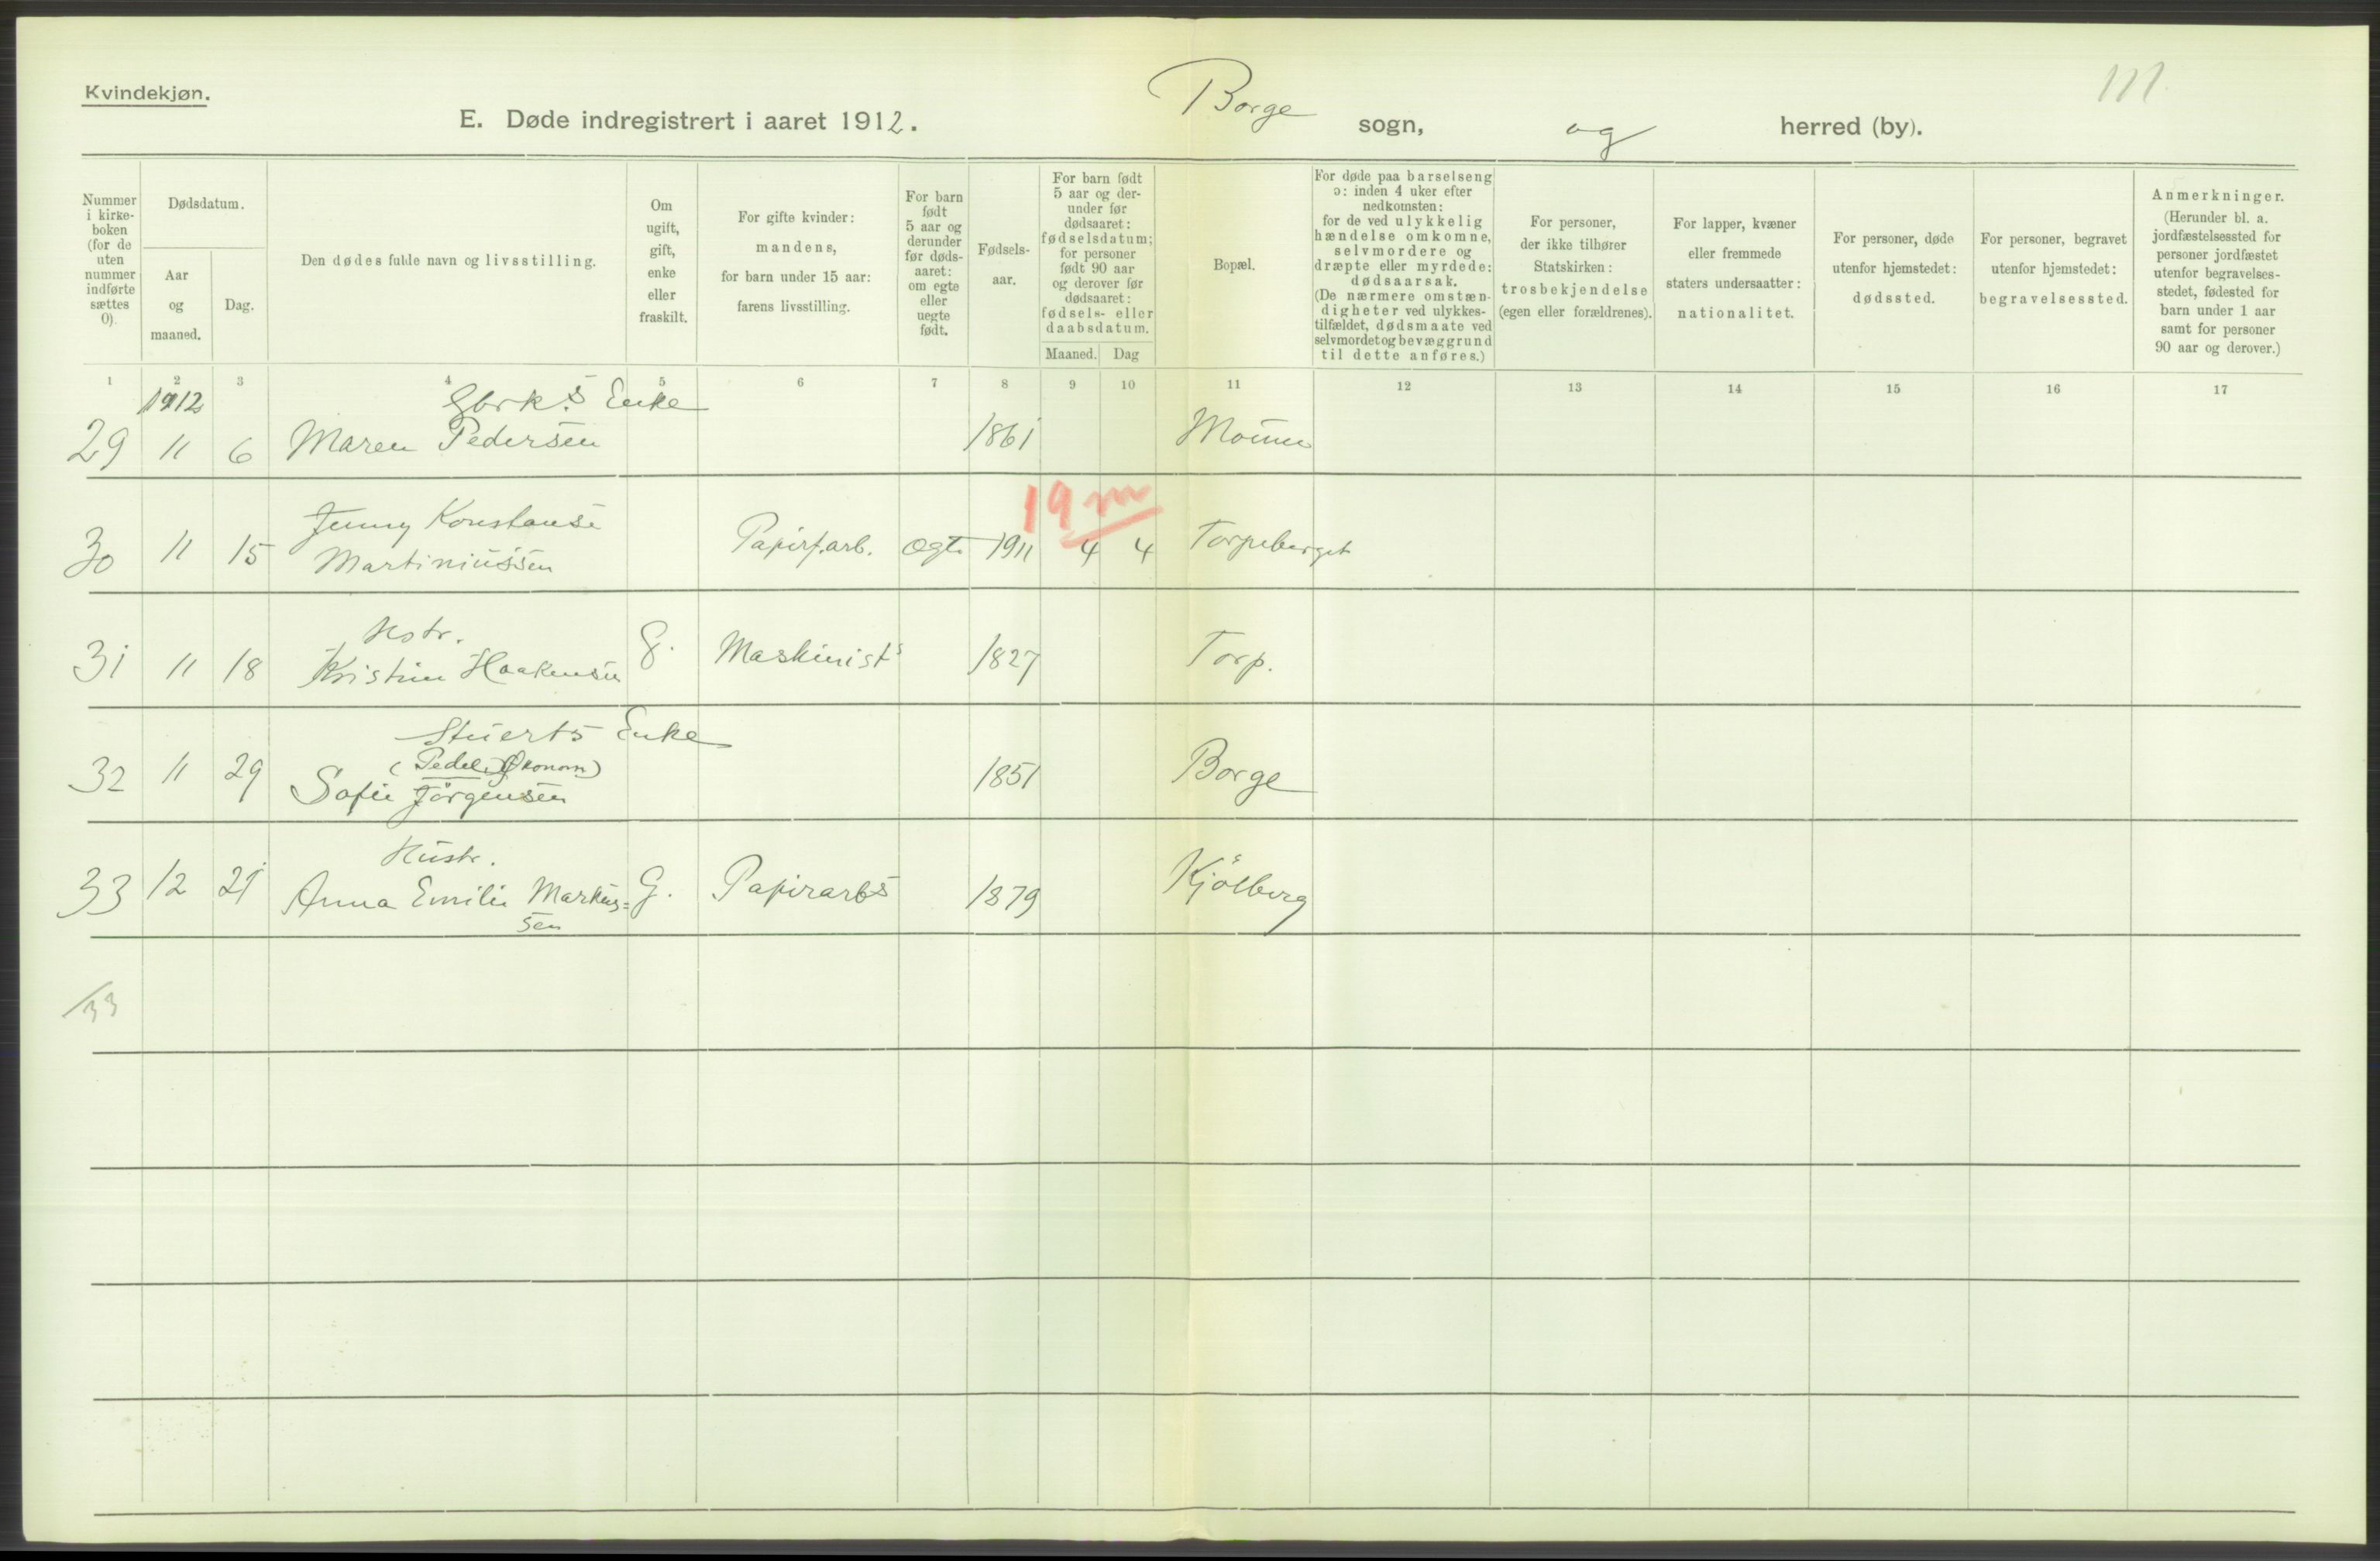 Kvindekjøn.
E. Døde indregistrert i aaret 1912.
Borge sogn, og herred (by).
111.
Nummer i kirke-boken (for de uten nummer indførte sættes 0).
Dødsdatum.
Aar og maaned.
Dag.
Den dødes fulde navn og livsstilling.
Om ugift, gift, enke eller fraskilt.
For gifte kvinder: mandens, for barn under 15 aar: farens livsstilling.
For barn født 5 aar og derunder før døds-aaret: om egte eller uegte født.
Fødsels-aar.
For barn født 5 aar og der-under før dødsaaret: fødselsdatum; for personer født 90 aar og derover før dødsaaret: fødsels- eller daabsdatum.
Maaned. Dag
Bopæl.
For døde paa barselseng ɔ: inden 4 uker efter nedkomsten: for de ved ulykkelig hændelse omkomne, selvmordere og dræpte eller myrdede: dødsaarsak. (De nærmere omstæn-digheter ved ulykkes-tilfældet, dødsmaate ved selvmordet og bevæggrund til dette anføres.)
For personer, der ikke tilhører Statskirken: trosbekjendelse (egen eller forældrenes).
For lapper, kvæner eller fremmede staters undersaatter: nationalitet.
For personer, døde utenfor hjemstedet: dødssted.
For personer, begravet utenfor hjemstedet: begravelsessted.
Anmerkninger. (Herunder bl. a. jordfæstelsessted for personer jordfæstet utenfor begravelses-stedet, fødested for barn under 1 aar samt for personer 90 aar og derover.)
1 2 3 4 5 6 7 8 9 10 11 12 13 14 15 16 17
1912 Gbrk.s Enke
29 11 6 Maren Pedersen 1861 Moum
19 m
Jenny Konstanse
30 11 15 Martiniussen Papirf.arb. Ægt. 1911 4 4 Torpeberget
Hstr.
31 11 18 Kristine Haakensen G. Maskinists 1827 Torp.
Stuerts Enke
(Pedel, Økonom)
32 11 29 Sofie Jörgensen 1851 Borge
Hustr.
33 12 21 Anna Emilie Markus= G. Papirarbs 1879 Kjölberg
sen
/33